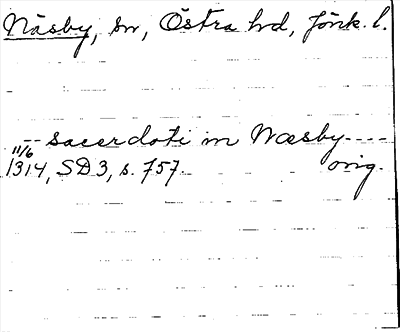 Näsby, sn, Östra hd, Jönk. l.
-- sacerdoti in Næsby ----
11/6 1314, SD 3, s. 757. orig.